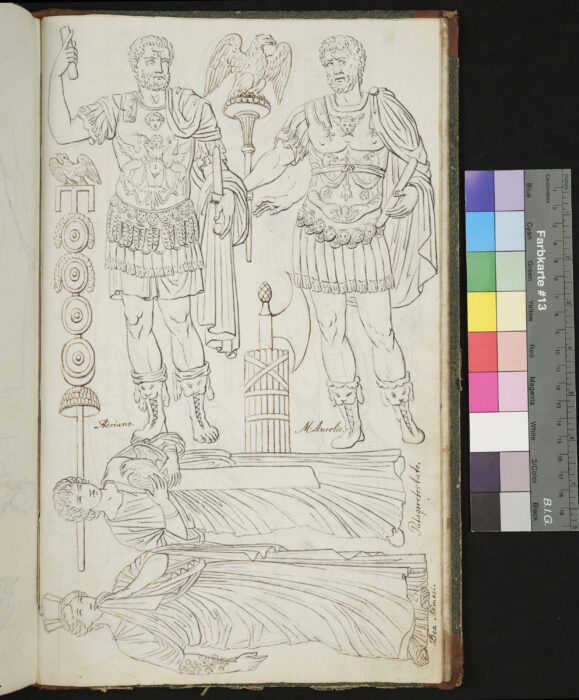 Adriano.
M. Aurelio.
Farbkarte #13
B.I.G.
Centimetres
Inches
Blue
Cyan
Green
Yellow
Red
Magenta
White
3/Color
Black
1
2
3
4
5
6
7
8
9
10
11
12
13
14
15
16
17
18
19